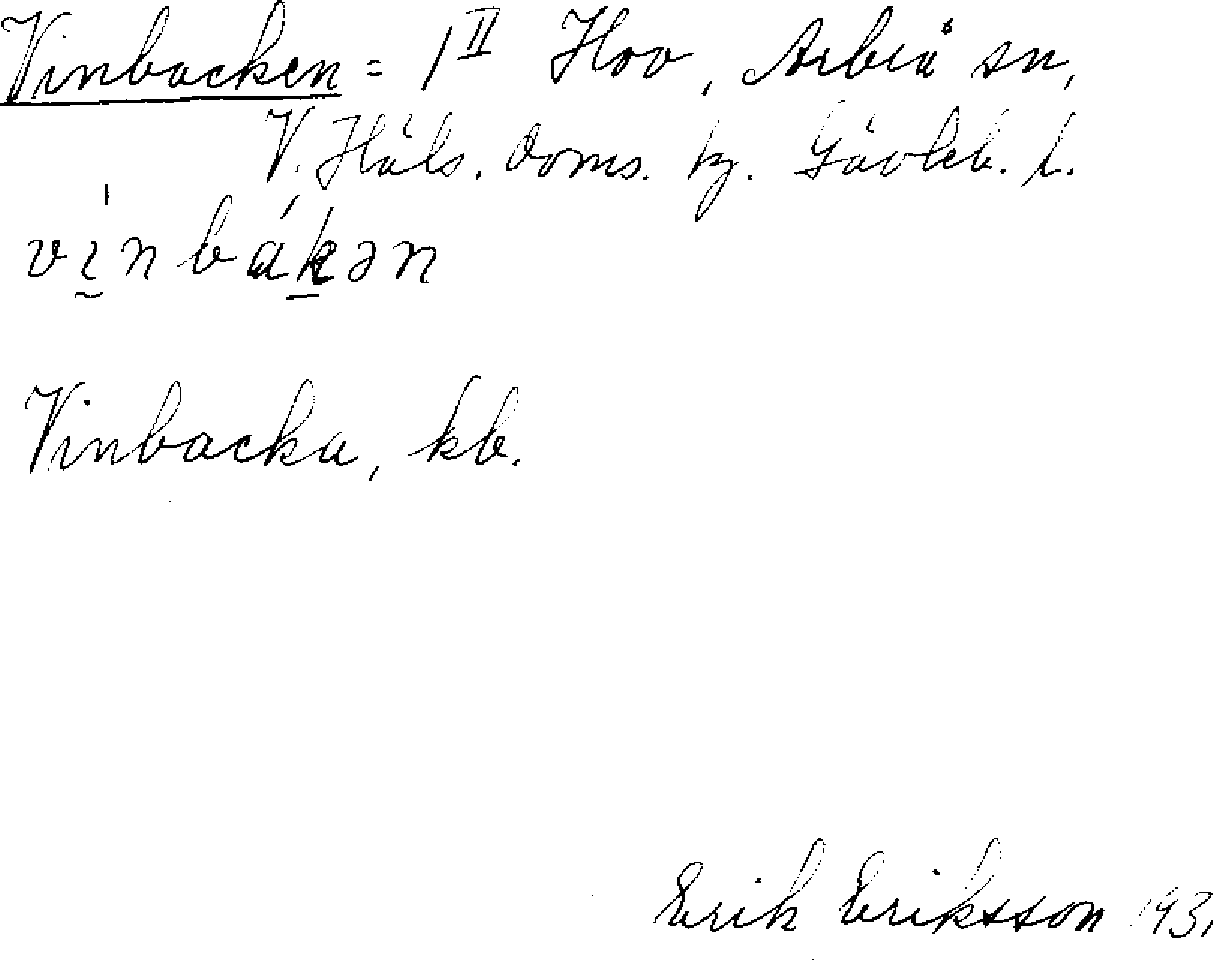 Vinbacken = 1 II Hov, Arbrå sn,
V. Häls. doms. tg. Gävleb. l.
vìnbákən
Vinbacka, kb.
Erik Eriksson 1931